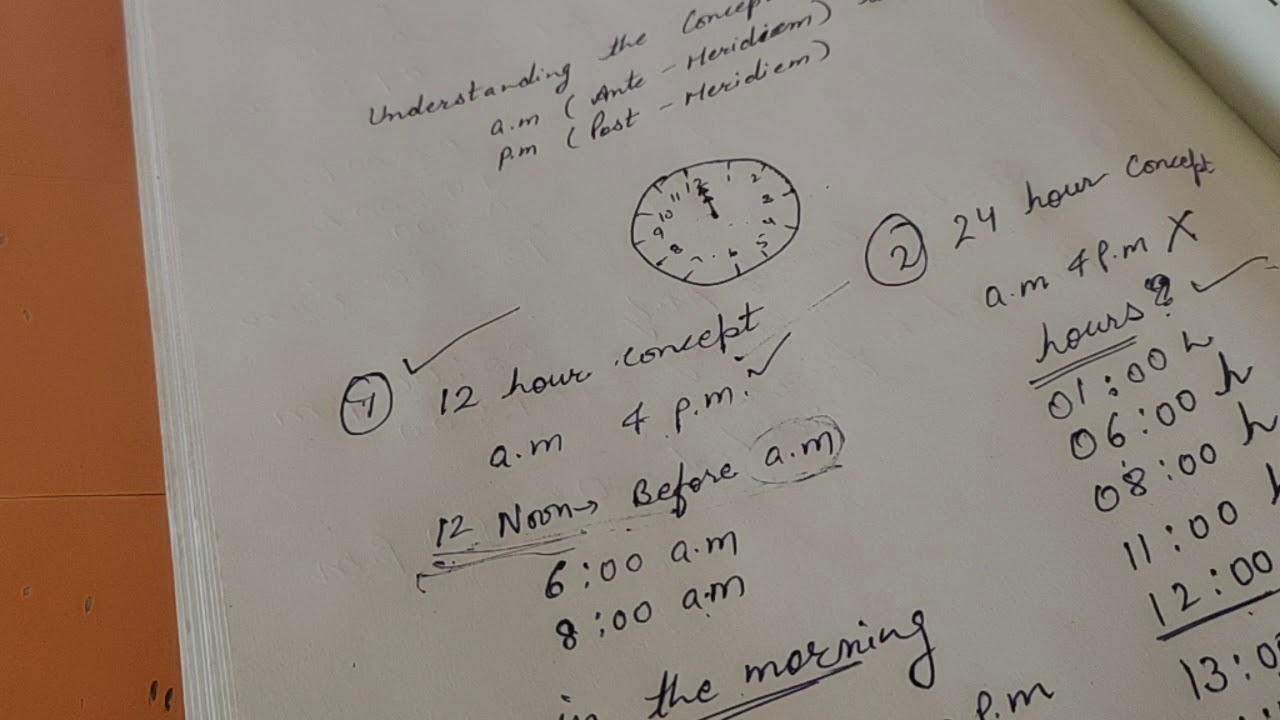 Understanding the Concep
a.m (Ante - Meridiem)
p.m (Post - Meridiem)
12
1
2
3
4
5
6
7
8
9
10
11
1 12 hour concept
a.m & p.m.
12 Noon → Before a.m
6:00 a.m
8:00 a.m
in the morning
p.m
2 24 hour Concept
a.m & p.m X
hours?
01:00 h
06:00 h
08:00 h
11:00 h
12:00
13:0